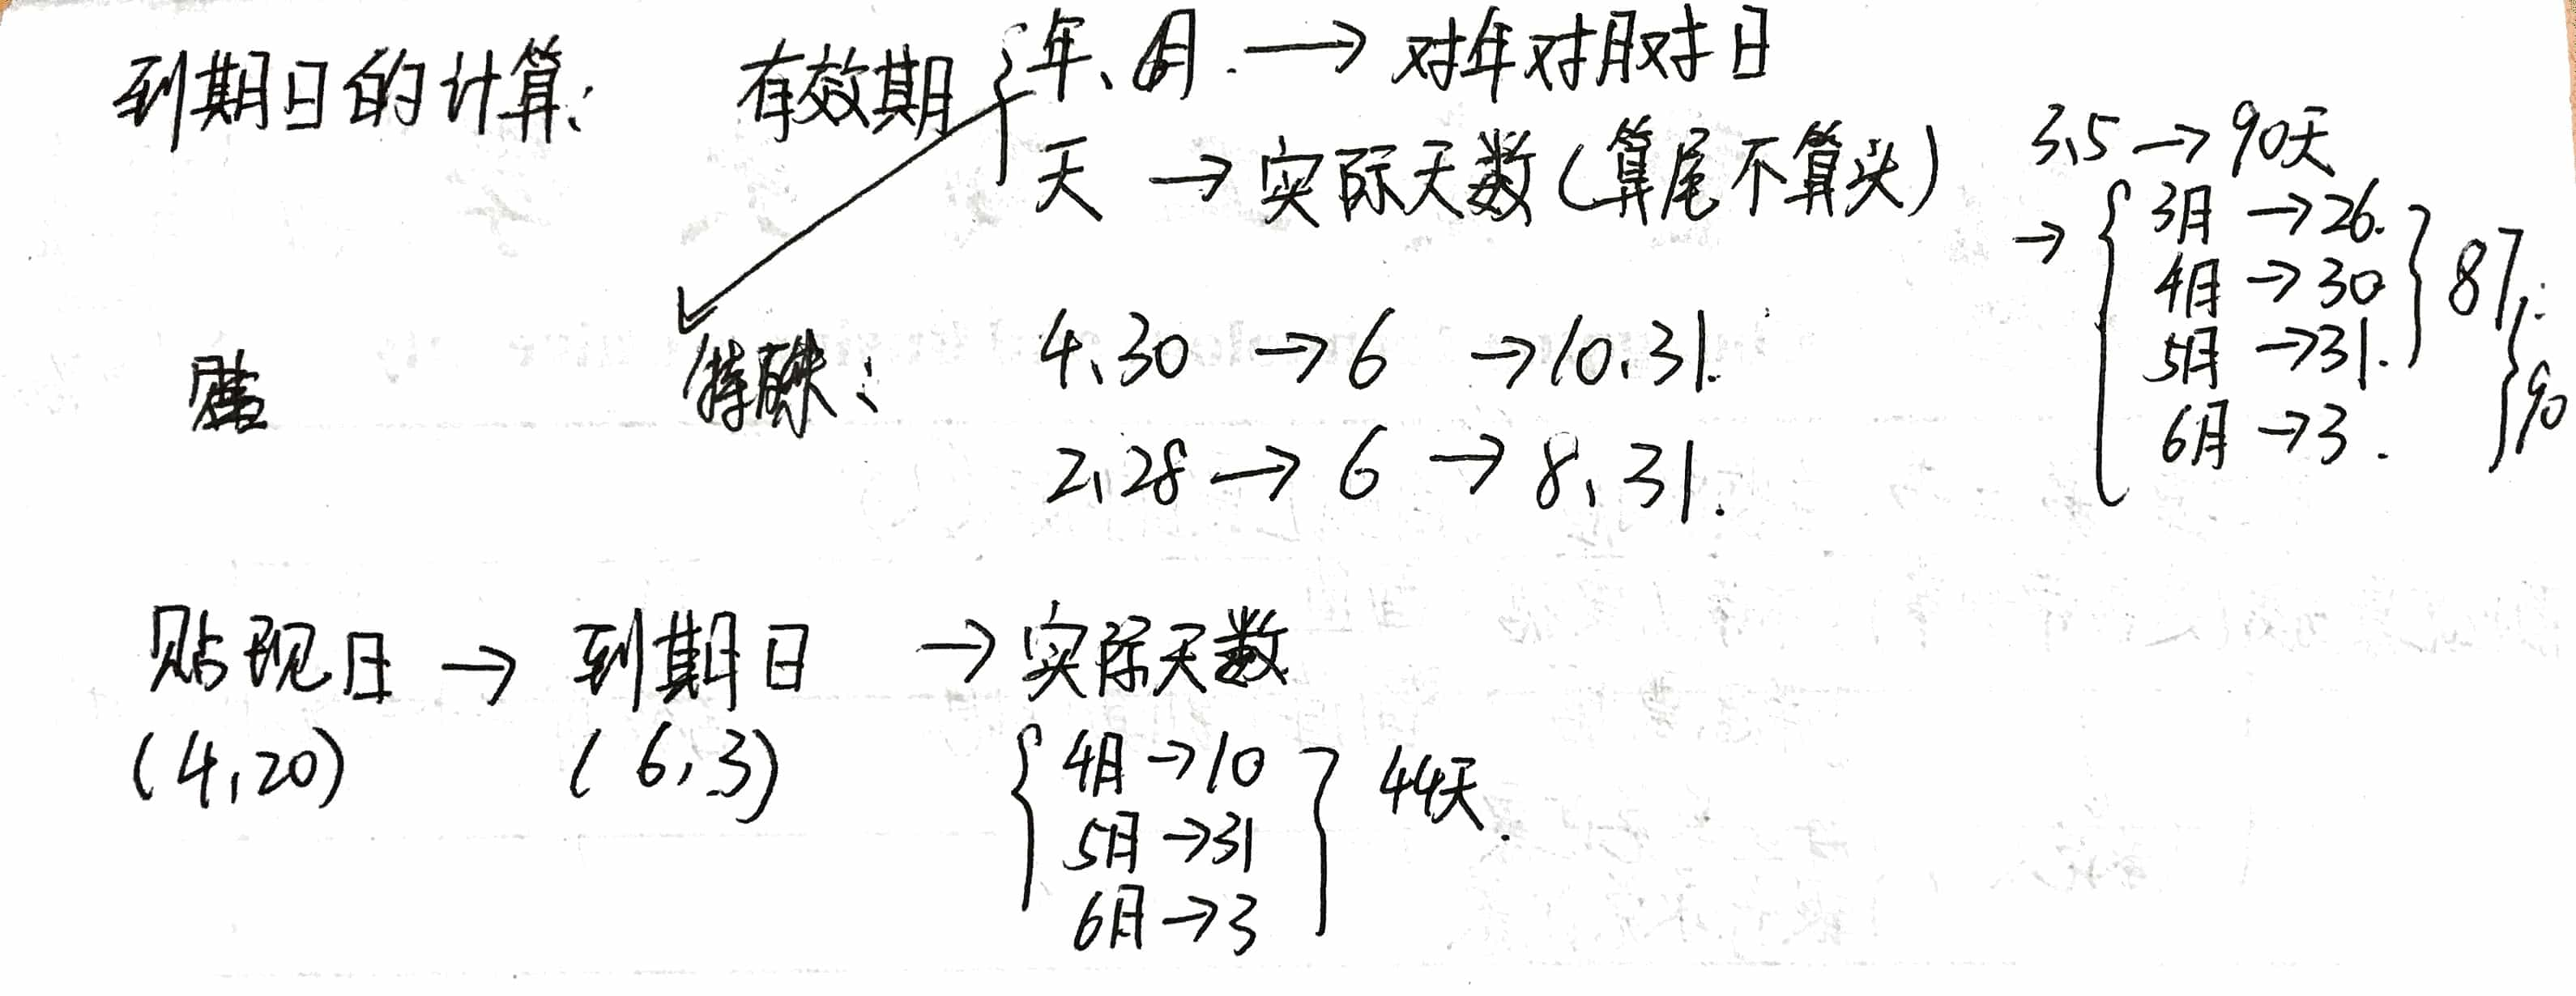 到期日的计算: 有效期 { 年、月 → 对年对月对日
天 → 实际天数(算尾不算头)
3,5 → 90天
→ { 3月 → 26.
4月 → 30 } 87
5月 → 31.
6月 → 3. } 90
特殊: 4,30 → 6 → 10.31.
2,28 → 6 → 8,31.
贴现日 → 到期日 → 实际天数
(4,20) (6,3)
{ 4月 → 10 } 44天.
5月 → 31
6月 → 3